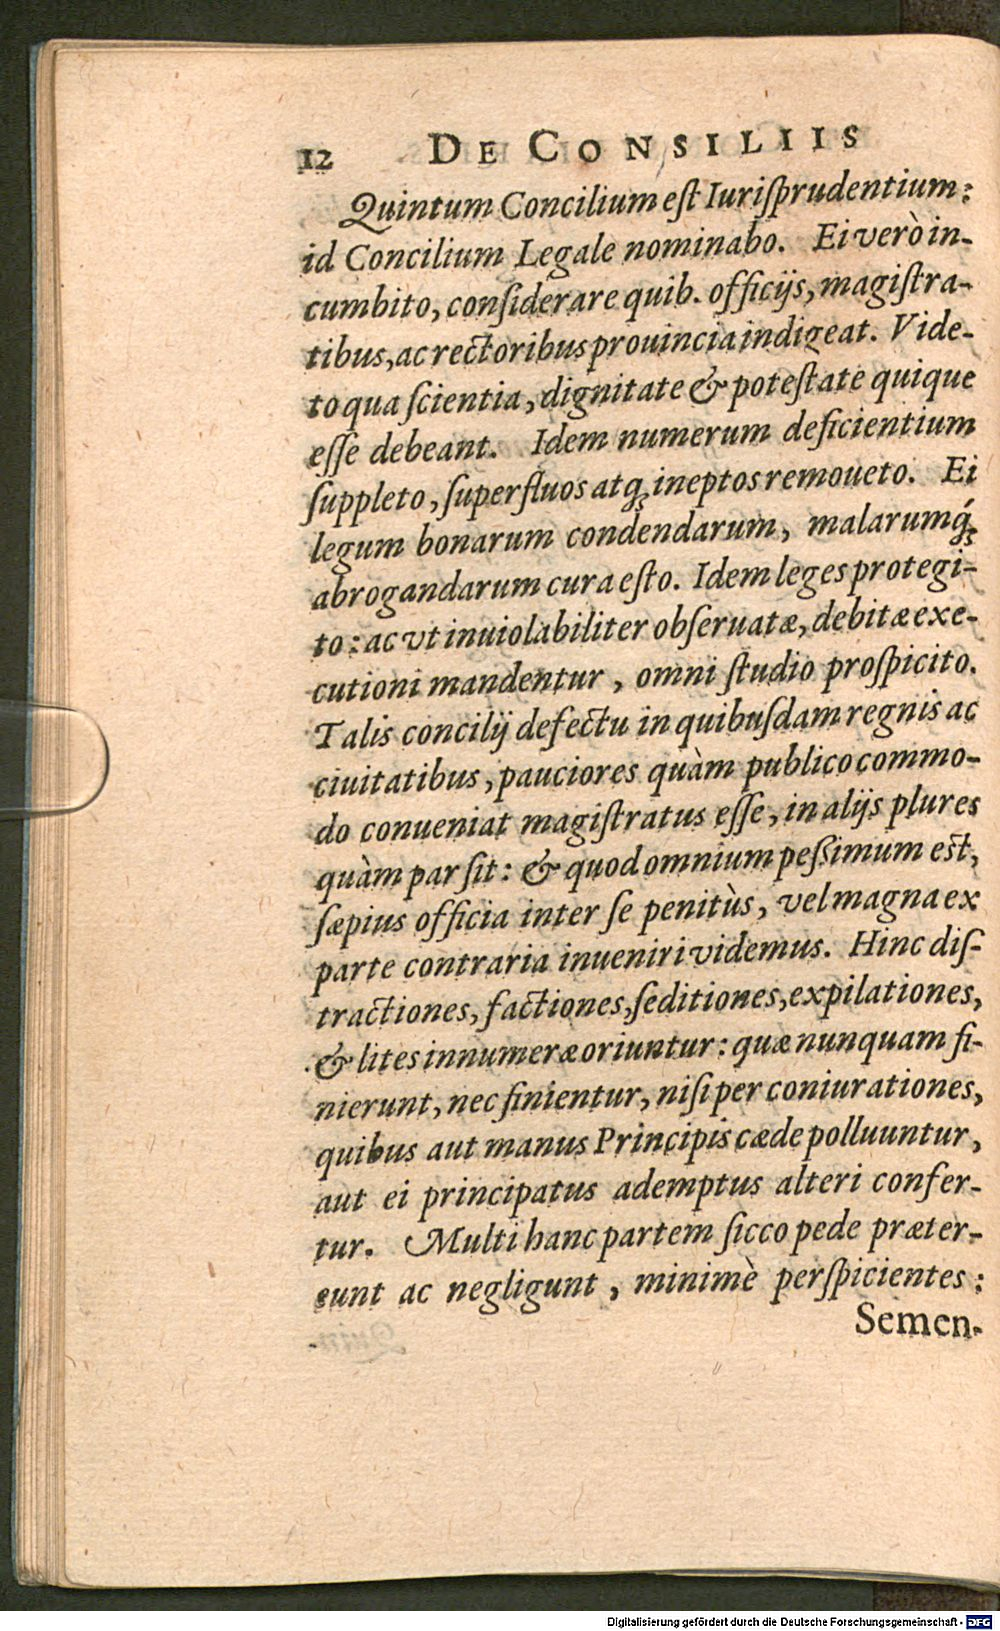 12 DE CONSILIIS
Quintum Concilium eſt Iuriſprudentium:
id Concilium Legale nominabo. Ei verò in-
cumbito, conſiderare quib. officijs, magiſtra-
tibus, ac rectoribus prouincia indigeat. Vide-
to qua ſcientia, dignitate & poteſtate quique
eſſe debeant. Idem numerum deficientium
ſuppleto, ſuperfluos atq; ineptos remoueto. Ei
legum bonarum condendarum, malarumq́;
abrogandarum cura eſto. Idem leges protegi-
to: ac vt inuiolabiliter obſeruatæ, debitæ exe-
cutioni mandentur, omni ſtudio proſpicito.
Talis concilij defectu in quibuſdam regnis ac
ciuitatibus, pauciores quàm publico commo-
do conueniat magiſtratus eſſe, in alijs plures
quàm par ſit: & quod omnium peſsimum est,
ſæpius officia inter ſe penitùs, vel magna ex
parte contraria inueniri videmus. Hinc diſ-
tractiones, factiones, ſeditiones, expilationes,
& lites innumeræ oriuntur: quæ nunquam fi-
nierunt, nec finientur, niſi per coniurationes,
quibus aut manus Principis cæde polluuntur,
aut ei principatus ademptus alteri confer-
tur. Multi hanc partem ſicco pede præter-
eunt ac negligunt, minimè perſpicientes:
Semen-
Digitalisierung gefördert durch die Deutsche Forschungsgemeinschaft - DFG